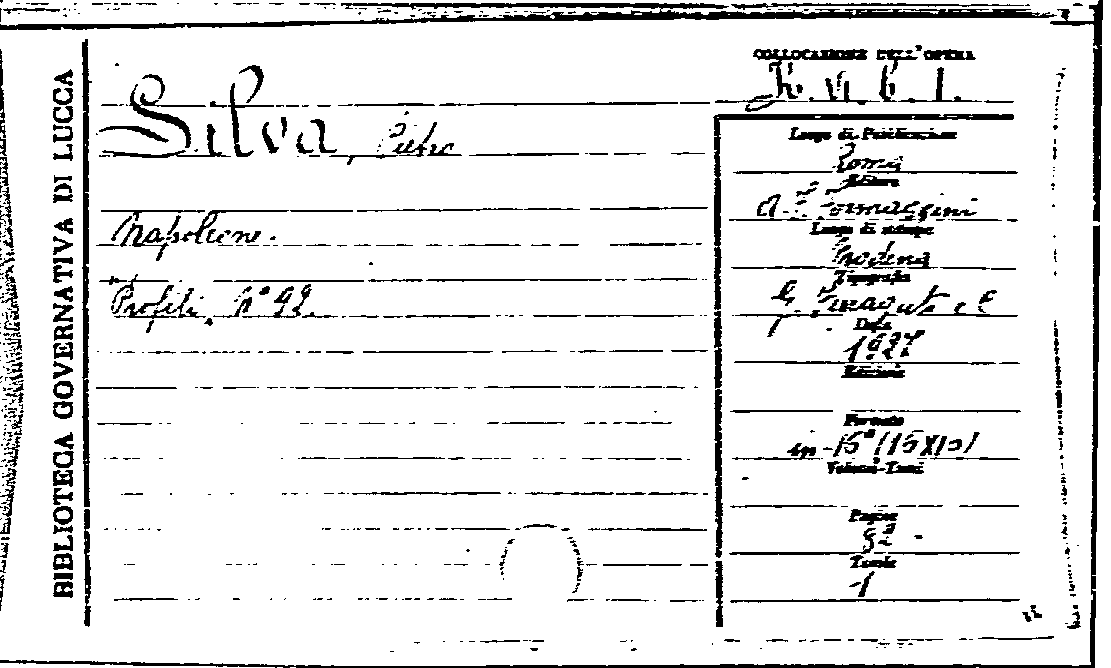 BIBLIOTECA GOVERNATIVA DI LUCCA
Silva, Pietro
Napoleone.
Profili. N° 92.
COLLOCAZIONE DELL'OPERA
VI. 6. 1.
Luogo di Pubblicazione
Roma
Editore
A. F. Formaggini
Luogo di stampa
Modena
Tipografia
G. e C
Data
1927
Edizione
Formato
in-16° (15X10)
Volumi-Tomi
Pagine
Tavole
1